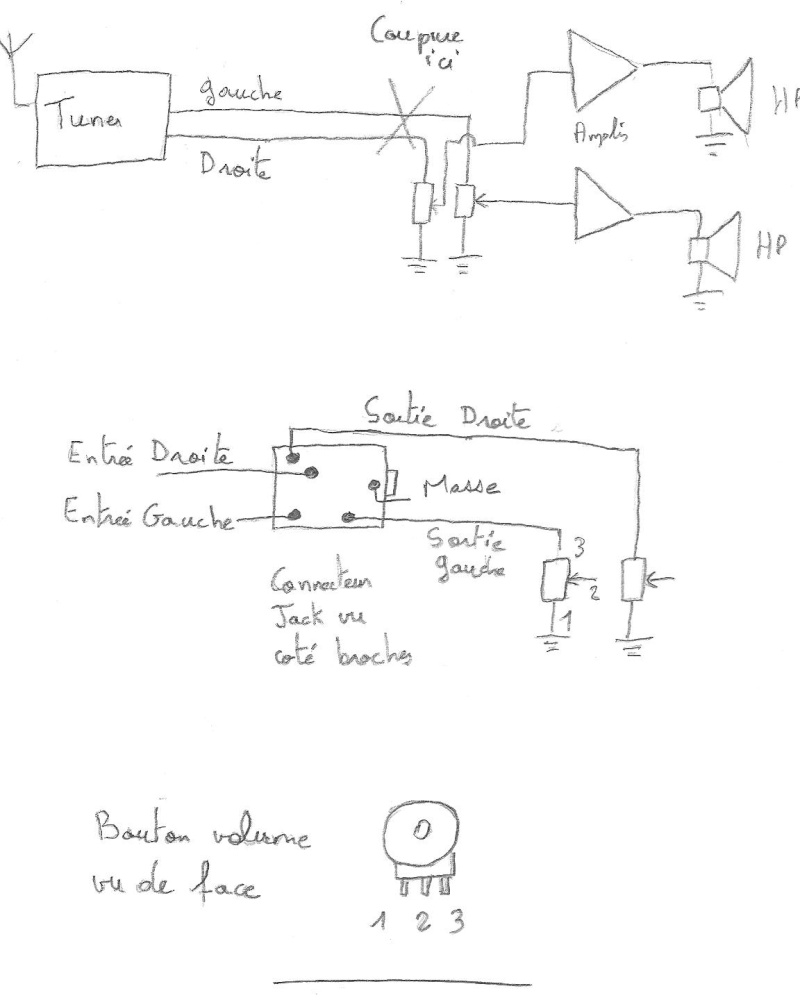 Coupure
ici
Tuner
gauche
Droite
Amplis
HP
HP
Sortie Droite
Entrée Droite
Masse
Entrée Gauche
Sortie
gauche
3
2
1
Connecteur
Jack vu
coté broches
Bouton volume
vu de face
1 2 3